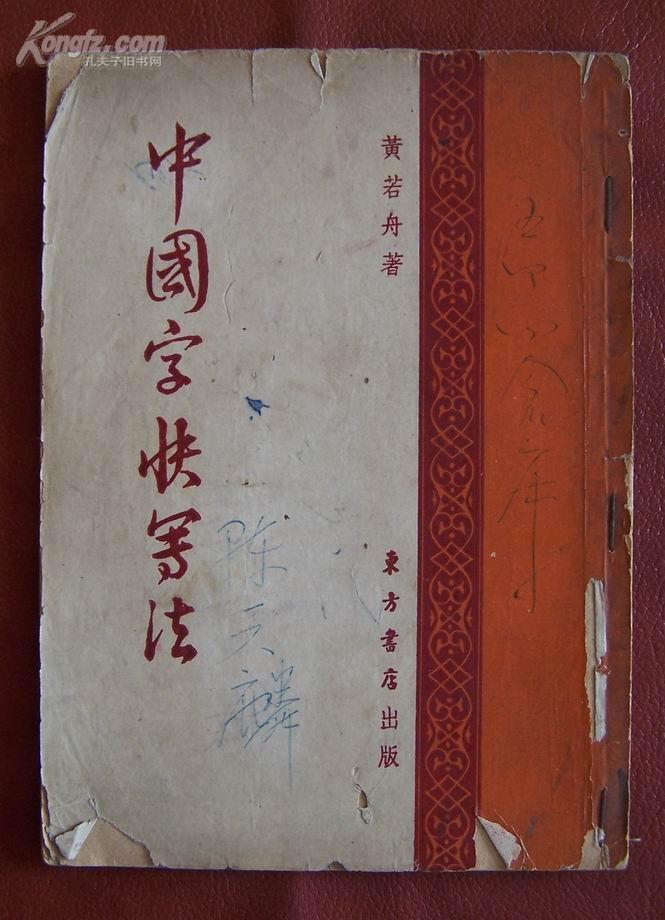 Kongfz.com
孔夫子旧书网
黃若舟著
東方書店出版
中國字快寫法
陈天麟